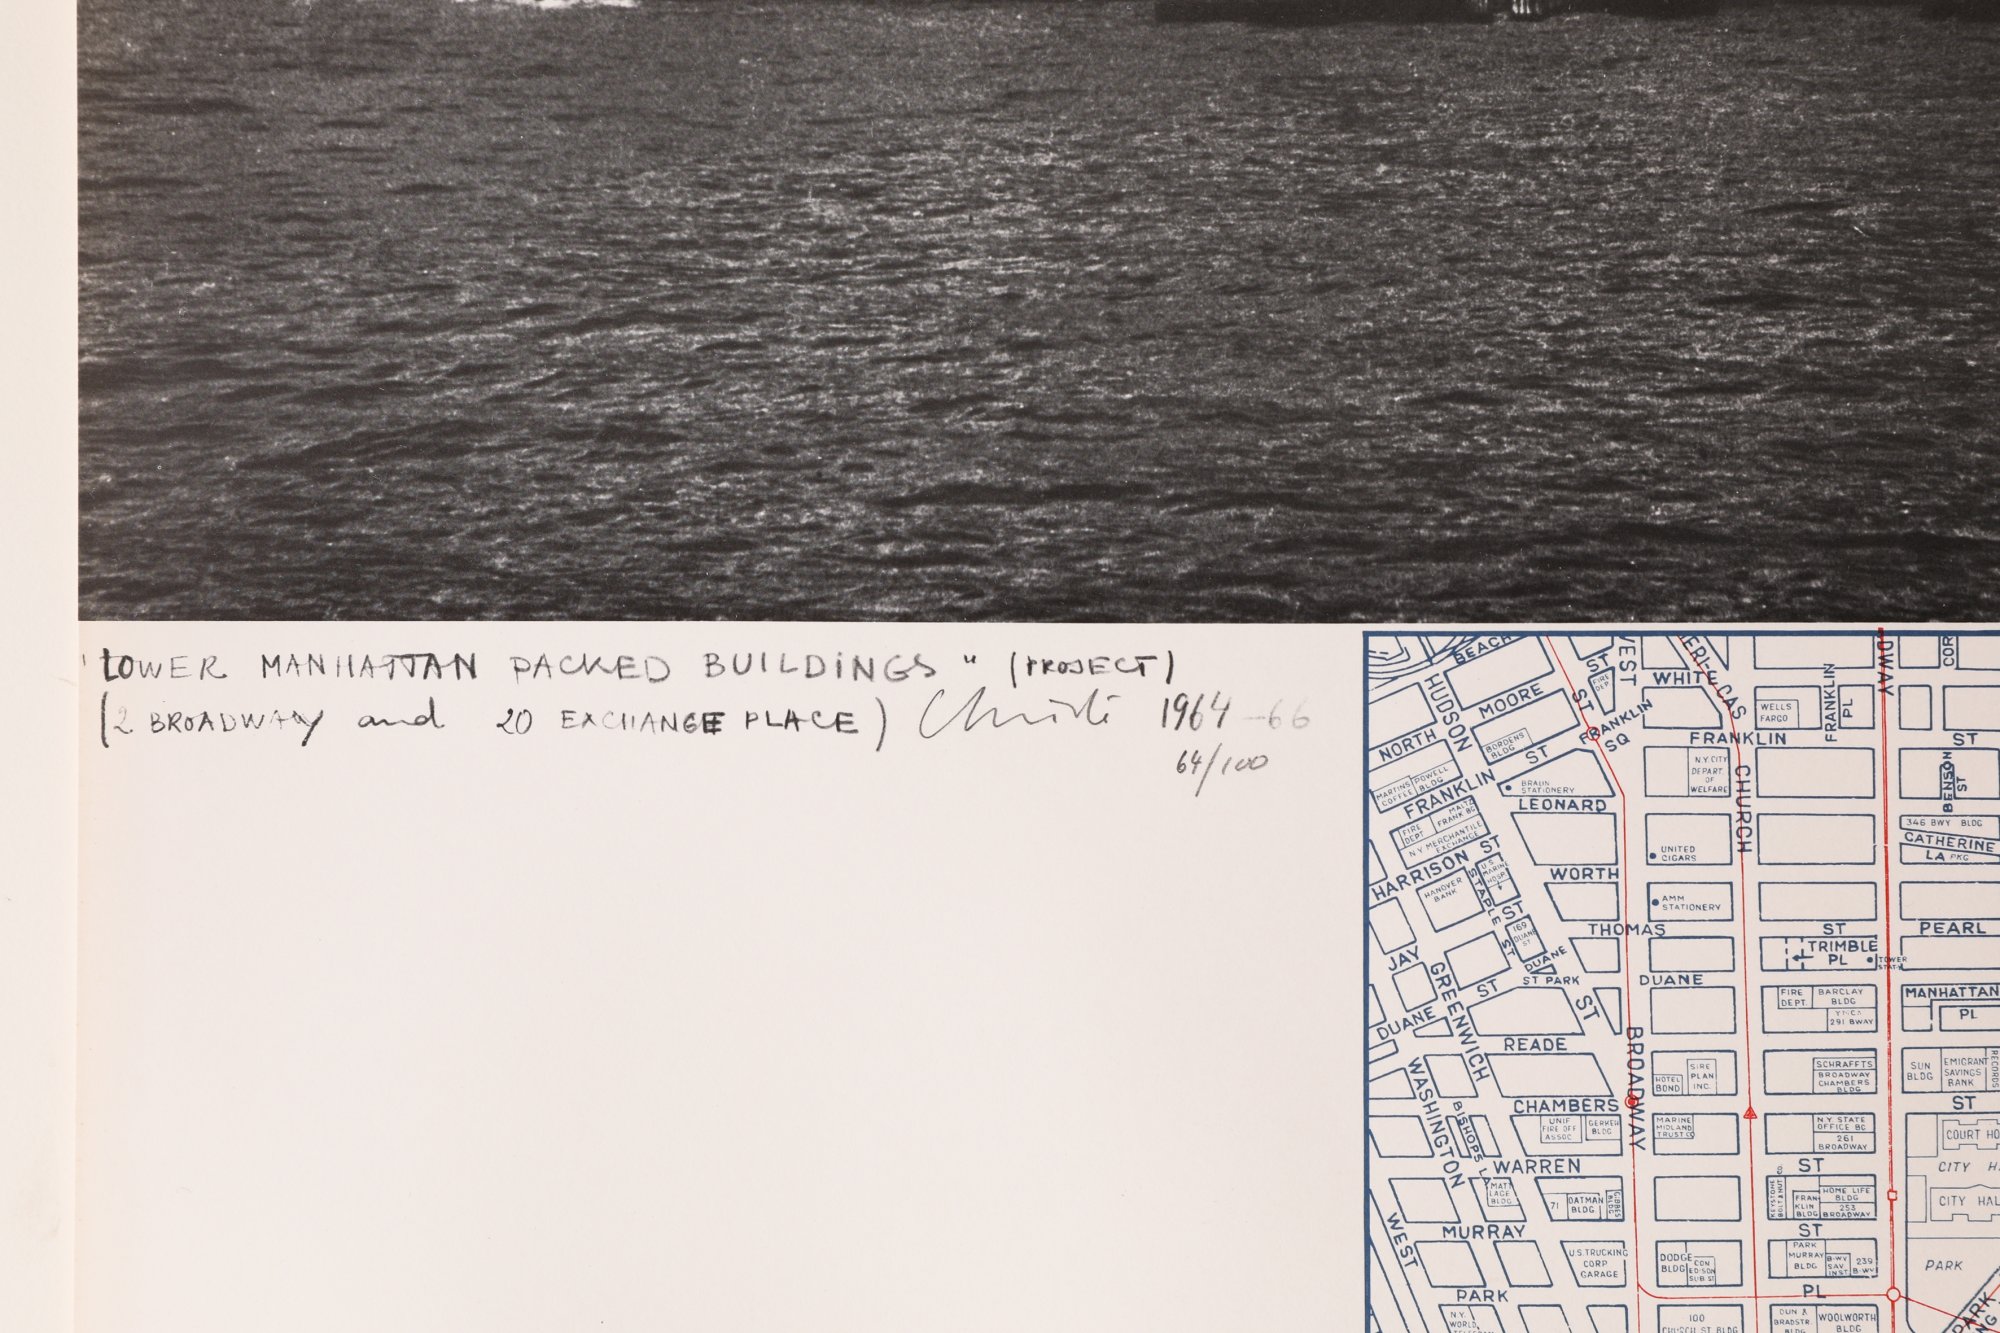 "LOWER MANHATTAN PACKED BUILDINGS" (PROJECT)
(2 BROADWAY and 20 EXCHANGE PLACE) Christo 1964-66
64/100
BEACH
HUDSON
MOORE
ST
FIRE DEP
WEST
WHITE
WELLS FARGO
FRANKLIN PL
DWAY
COR
NORTH
BORDENS BLDG
ST
FRANKLIN SQ
FRANKLIN
ST
MARTINS COFFEE
POWELL BLDG
FRANKLIN
ST
BRAUN STATIONERY
LEONARD
N.Y. CITY DEPART. OF WELFARE
CHURCH
BENSON ST
FIRE DEPT
MALTZ FRANK BG
N.Y. MERCHANTILE EXCHANGE
ST
346 BWY BLDG
CATHERINE
LA PKG
UNITED CIGARS
HARRISON
HANOVER BANK
STAPLE ST
U.S. MARINE HOSP
WORTH
AMM STATIONERY
ST
169 DUANE ST
THOMAS
ST
PEARL
TRIMBLE PL
TOWER
JAY
GREENWICH
ST
DUANE
ST PARK
ST
DUANE
FIRE DEPT.
BARCLAY BLDG
Y.M.C.A
291 BWAY
MANHATTAN
PL
DUANE
READE
BROADWAY
WASHINGTON
HOTEL BOND
SIRE PLAN INC.
SCHRAFFTS
BROADWAY CHAMBERS BLDG
SUN BLDG
EMIGRANT SAVINGS BANK
RECORDS
CHAMBERS
ST
BISHOPS LA
UNIF FIRE OFF ASSOC
GERKEN BLDG
MARINE MIDLAND TRUST CO
N.Y. STATE OFFICE BG
261 BROADWAY
COURT HO
CITY H
WARREN
ST
MATT LACE BLDG
71
OATMAN BLDG.
GIBBES BLDG
KEYSTONE BOLT & NUT
8
FRANKLIN BLDG
HOME LIFE BLDG
253 BROADWAY
CITY HAL
WEST
MURRAY
ST
U.S. TRUCKING CORP GARAGE
DODGE BLDG
CON EDISON SUB ST
PARK MURRAY BLDG
B-WY SAV. INST
239 B-WY
PARK
PARK
PL
N.Y. WORLD
100 CHURCH ST BLDG
DUN & BRADSTR. BLDG
WOOLWORTH BLDG
PARK